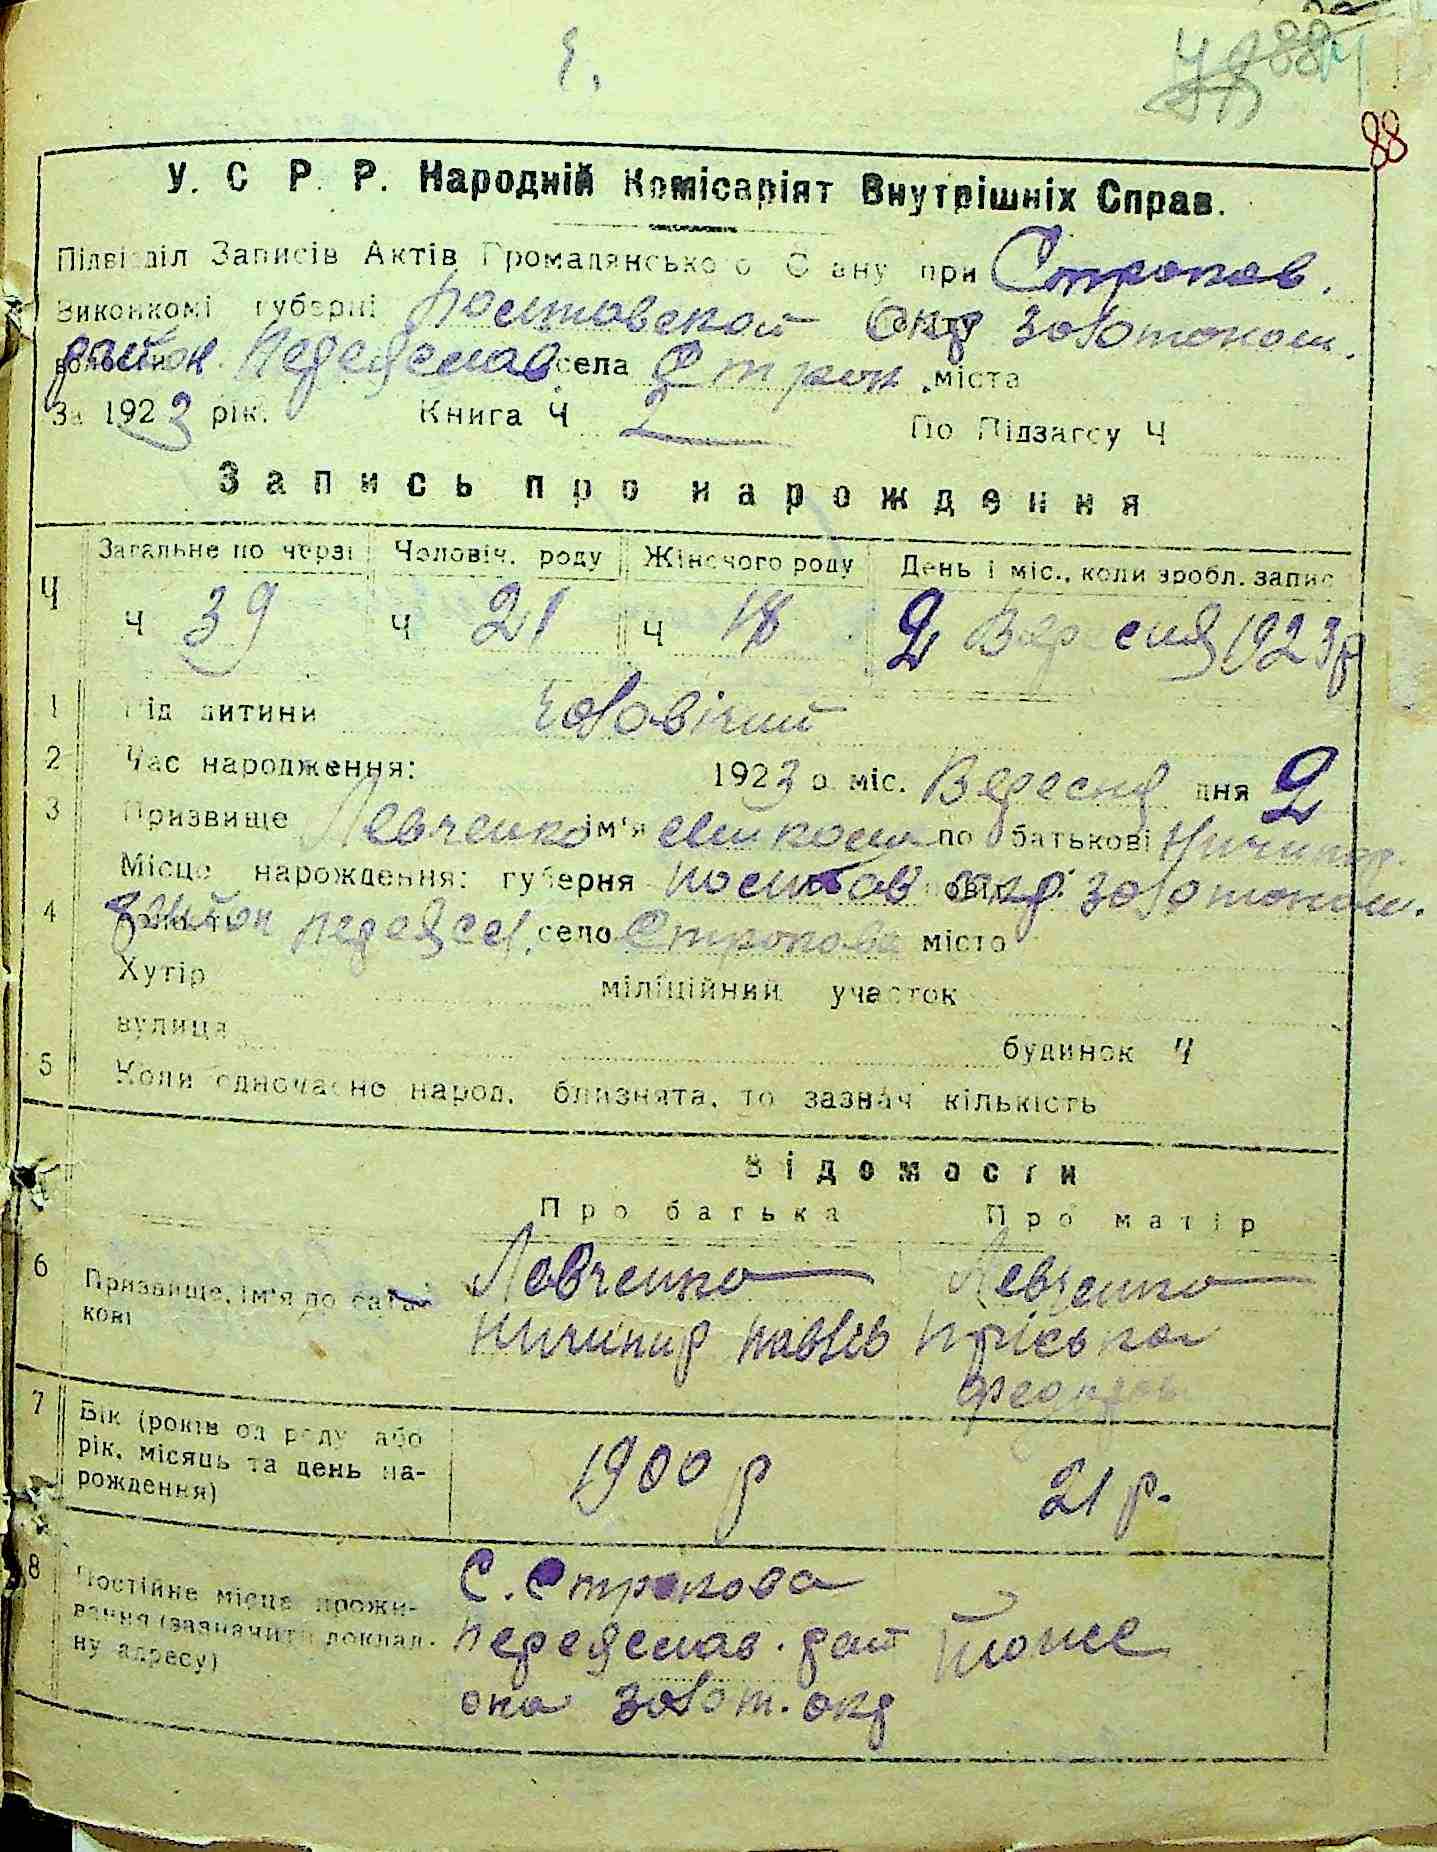 88
88
У. С Р. Р. Народній Комісаріят Внутрішніх Справ.
Підвідділ Записів Актів Громадянського Стану при Строков.
Виконкомі губерні Полтавской Окр Золотонош.
район Переяслав. села Строк. міста
За 1923 рік. Книга Ч 2 По Підзагсу Ч
Запись про нарождення
Ч Загальне по черзі Чоловіч. роду Жіночого роду День і міс., коли зробл. запис
Ч 39 Ч 21 Ч 18 2 Вересня 1923 р
1 Рід дитини Чоловічий
2 Час народження: 1923 р. міс. Вересня дня 2
3 Призвище Левченко ім'я по батькові Ничипор.
Місце нарождення: губерня Полтав окр Золотонош.
4 район Переясл. село Строкова місто
Хутір міліційний участок
вулиця будинок Ч
5 Коли одночасно народ. близнята, то зазнач кількість
Відомости
Про батька Про матір
6 Призвище, ім'я по бать-
кові
Левченко
Ничипир Павлов
Левченко
Пріська
Федоров
7 Вік (років од роду або
рік, місяць та день на-
рождення)
1900 р
21 р.
8 Постійне місце прожи-
вання (зазначити доклад-
ну адресу)
С. Строкова
Переяслав. рай
она Золот. окр
Тоже